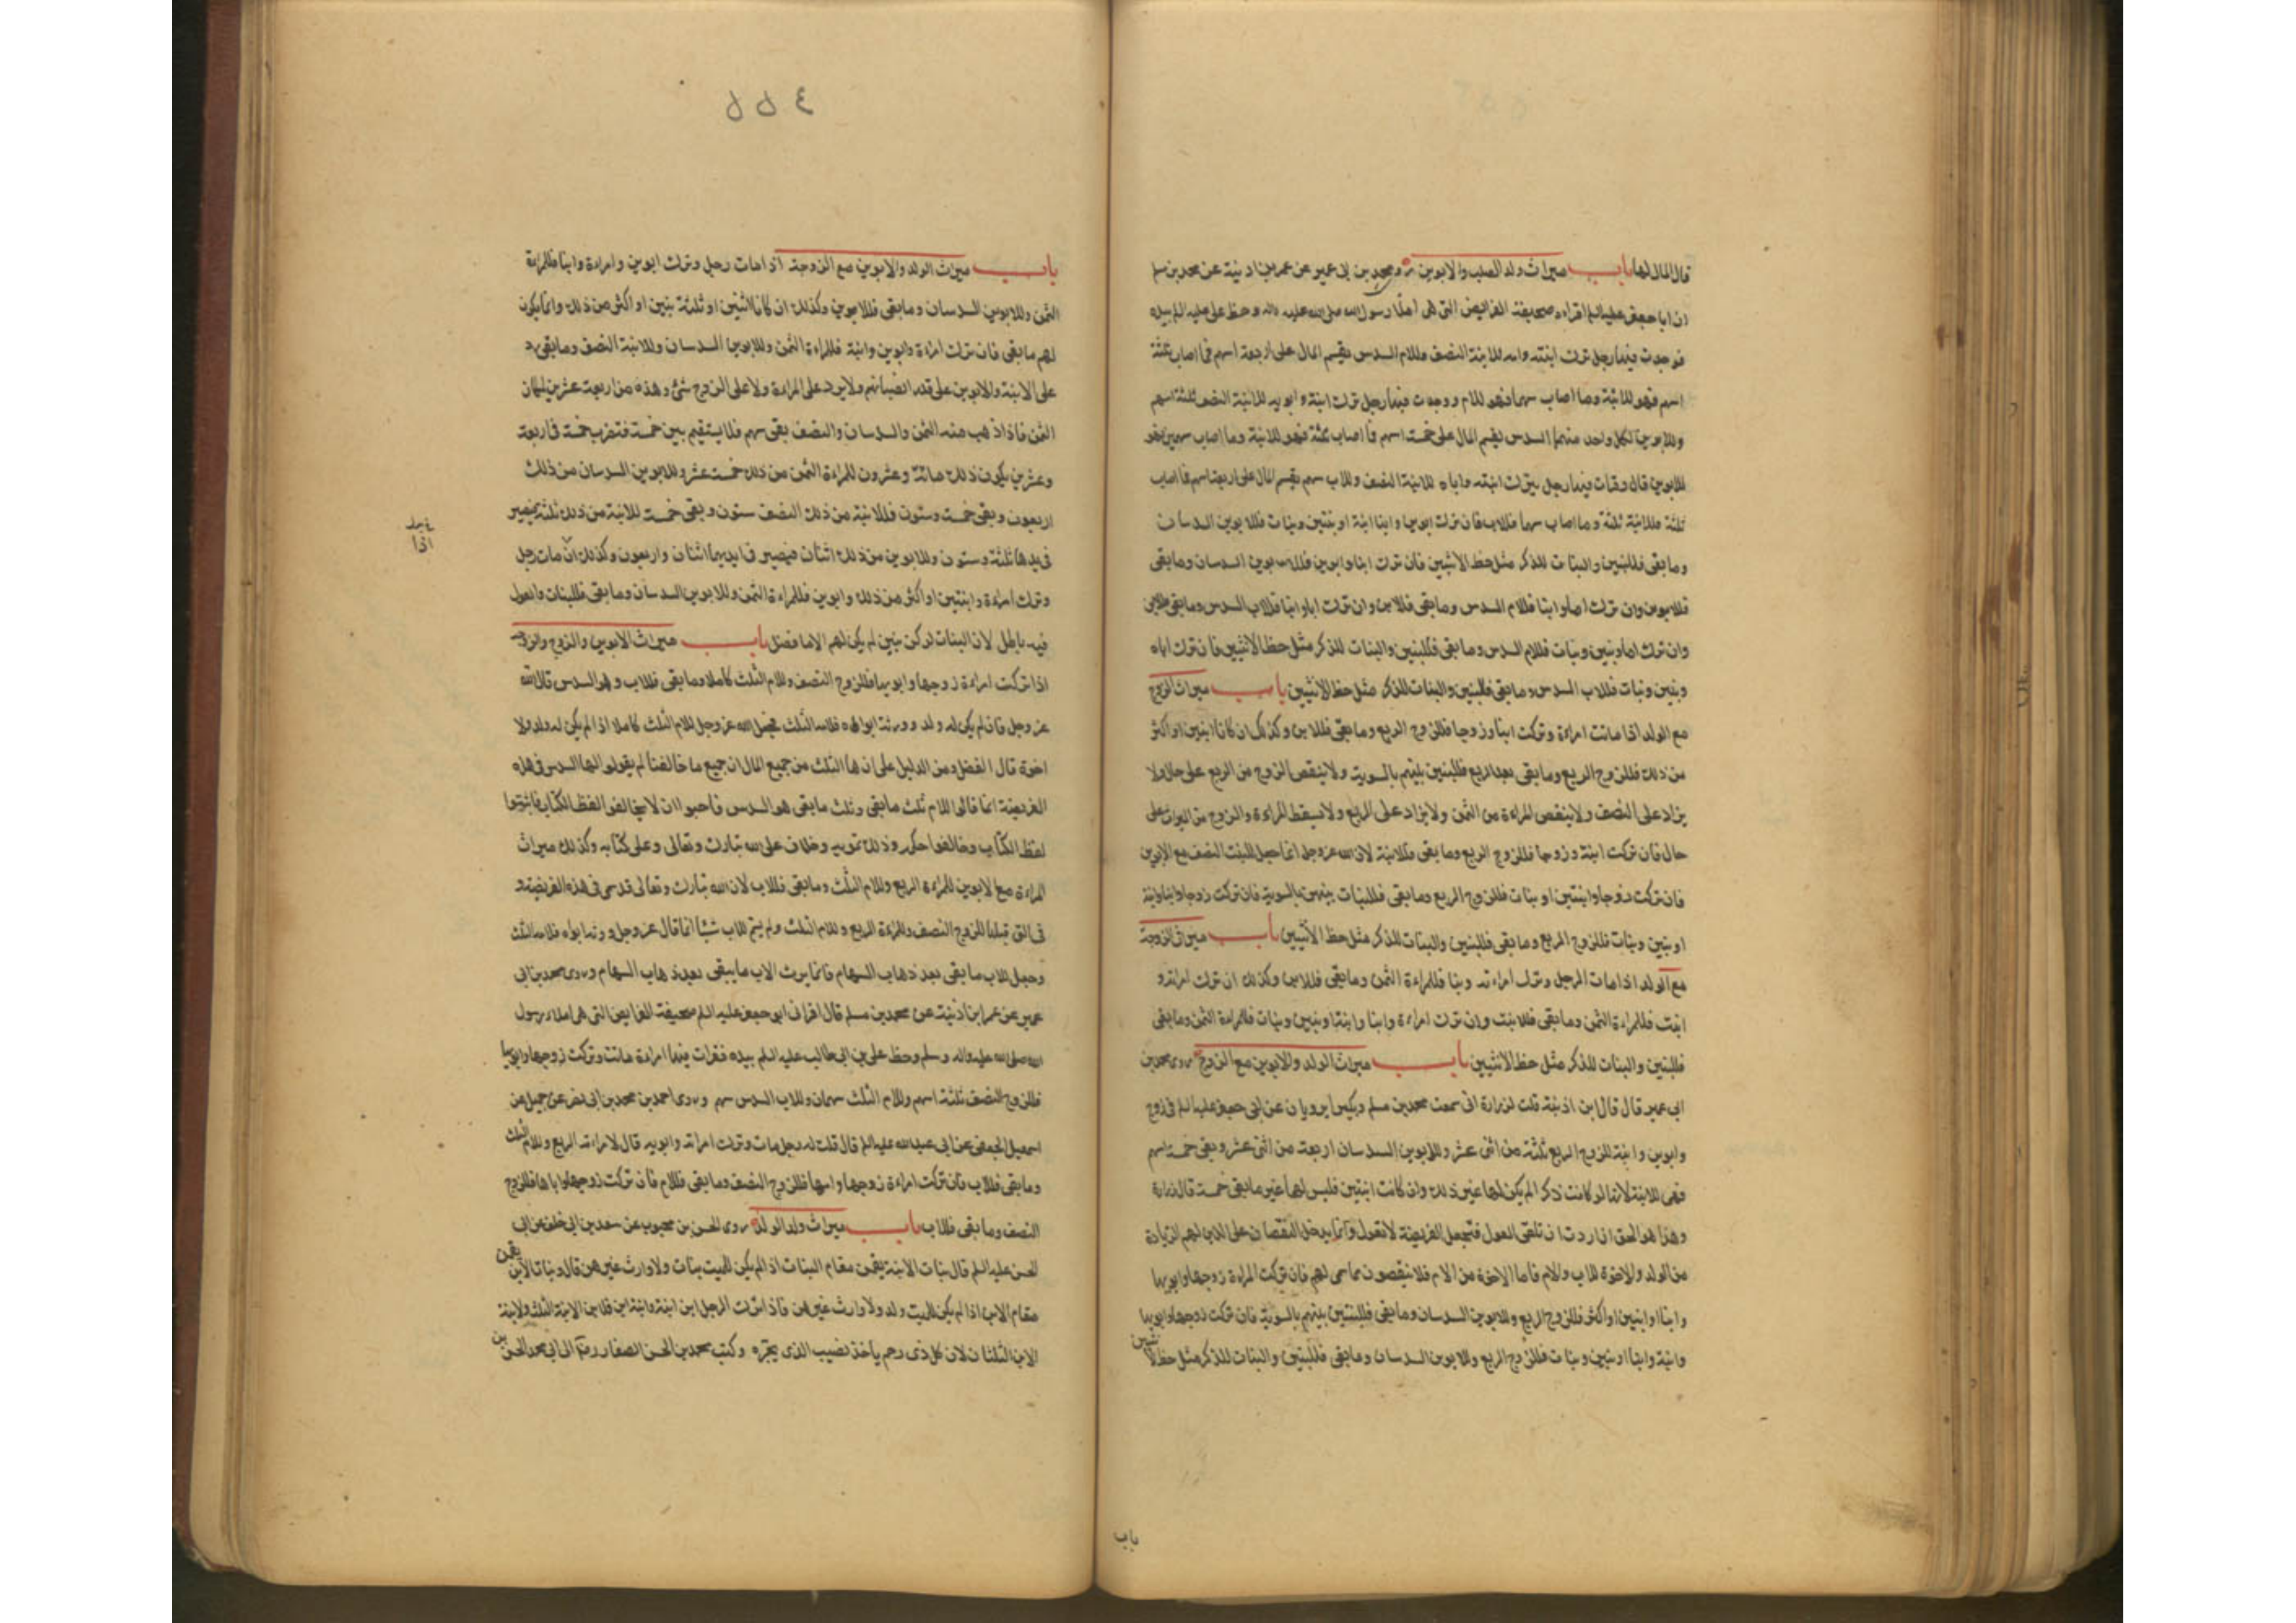 قال المال لها باب ميراث ولد الصلب والابوين روى محمد بن ابى عمير عن عمر بن اذينة عن محمد بن مسلم
ان ابا جعفر عليه السلم اقراه صحيفة الفرايض التى هى املاء رسول الله صلى الله عليه واله وخط على عليه السلم بيده
فوجدت فيها رجل ترك ابنته وامه للابنة النصف وللام السدس يقسم المال على اربعة اسهم فما اصاب ثلثة
اسهم فهو للابنة وما اصاب سهما فهو للام ووجدت فيها رجل ترك ابنة وابويه للابنة النصف ثلثة اسهم
وللابوين لكل واحد منهما السدس يقسم المال على خمسة اسهم فما اصاب ثلثة فهو للابنة وما اصاب سهمين فهو
للابوين قال وقرات فيها رجل ترك ابنته واباه للابنة النصف وللاب سهم يقسم المال على اربعة اسهم فما اصاب
ثلثة فللابنة ثلثة وما اصاب سهما فللاب فان ترك ابوين وابنا ابنة او بنتين وبنات فللابوين السدسان
وما بقى فللبنين والبنات للذكر مثل حظ الانثيين فان ترك ابنا وابوين فللابوين السدسان وما بقى
فللابن وان ترك اما وابنا فللام السدس وما بقى فللابن وان ترك ابا وابنا فللاب السدس وما بقى فللابن
وان ترك اما وبنين وبنات فللام السدس وما بقى فللبنين والبنات للذكر مثل حظ الانثيين فان ترك اباه
وبنين وبنات فللاب السدس وما بقى فللبنين والبنات للذكر مثل حظ الانثيين باب ميراث الزوج
مع الولد اذا ماتت امراة وتركت ابنا وزوجا فللزوج الربع وما بقى فللابن وكذلك ان كانا ابنين او اكثر
من ذلك فللزوج الربع وما بقى بعد الربع فللبنين بينهم بالسوية ولا ينقص الزوج من الربع على حال ولا
يزاد على النصف ولا ينقص المراة من الثمن ولا يزاد على الربع ولا يسقط المراة والزوج من الميراث على
حال فان تركت ابنة وزوجا فللزوج الربع وما بقى فللابنة لان الله عز وجل انما جعل للبنت النصف مع الابوين
فان تركت زوجا وابنتين او بنات فللزوج الربع وما بقى فللبنات بينهن بالسوية فان تركت زوجا وابنا وابنة
او بنين وبنات فللزوج الربع وما بقى فللبنين والبنات للذكر مثل حظ الانثيين باب ميراث الزوجة
مع الولد اذا مات الرجل وترك امراته وبنا فللمراة الثمن وما بقى فللابن وكذلك ان ترك امراته و
ابنت فللمراة الثمن وما بقى فللابنت وان ترك امراة وابنا وابنة او بنين وبنات فللمراة الثمن وما بقى
فللبنين والبنات للذكر مثل حظ الانثيين باب ميراث الولد والابوين مع الزوج روى محمد بن
ابى عمير قال قال ابن اذينة قلت لزرارة انى سمعت محمد بن مسلم وبكيرا يرويان عن ابى جعفر عليه السلم فى زوج
وابوين وابنة للزوج الربع ثلثة من اثنى عشر وللابوين السدسان اربعة من اثنى عشر وبقى خمسة اسهم
فهى للابنة لانها لو كانت ذكرا لم يكن لها غير ذلك وان كانت ابنتين فليس لهما غير ما بقى خمسة قال زرارة
وهذا هو الحق ان اردت ان تلقى العول فتجعل الفريضة لا تعول وانما يدخل النقصان على الذين لهم الزيادة
من الولد والاخوة للاب والام فاما الاخوة من الام فلا ينقصون مما سمى لهم فان تركت المراة زوجها وابويها
وابنا او ابنين او اكثر فللزوج الربع وللابوين السدسان وما بقى فللبنين بينهم بالسوية فان تركت زوجها وابويها
وابنة وابنا او بنين وبنات فللزوج الربع وللابوين السدسان وما بقى فللبنين والبنات للذكر مثل حظ الانثيين
باب
باب ميراث الولد والابوين مع الزوجة اذا مات رجل وترك ابوين وامراة وابنا فللمراة
الثمن وللابوين السدسان وما بقى فللابن وكذلك ان كانا اثنين او ثلثة بنين او اكثر من ذلك وانما يكون
لهم ما بقى فان ترك امراة وابوين وابنة فللمراة الثمن وللابوين السدسان وللابنة النصف وما بقى رد
على الابنة وللابوين على قدر انصبائهم ولا يرد على المراة ولا على الزوج شئ وهذه من اربعة عشرين لمكان
الثمن فاذا ذهب منه الثمن والسدسان والنصف بقى سهم فلا يستقيم بين خمسة فتضرب خمسة فى اربعة
وعشرين يكون ذلك مائة وعشرون للمراة الثمن من ذلك خمسة عشر وللابوين السدسان من ذلك
اربعون وبقى خمسة وستون فللابنة من ذلك النصف ستون وبقى خمسة للابنة من ذلك ثلثة فيصير
فى يدها ثلثة وستون وللابوين من ذلك اثنان فيصير فى ايديهما اثنان واربعون وكذلك ان مات رجل
اذا
وترك امراة وابنتين او اكثر من ذلك وابوين فللمراة الثمن وللابوين السدسان وما بقى فللبنات والعول
فيه باطل لان البنات لو كن بنين لم يكن لهم الا ما فضل باب ميراث الابوين والزوج والزوجة
اذا تركت امراة زوجها وابويها فللزوج النصف وللام الثلث كاملا وما بقى فللاب وهو السدس قال الله
عز وجل فان لم يكن له ولد وورثه ابواه فلامه الثلث فجعل الله عز وجل للام الثلث كاملا اذا لم يكن له ولد ولا
اخوة قال الفضل ومن الدليل على ان لها الثلث من جميع المال ان جميع ما خالفنا لم يقولوا لها السدس فى هذه
الفريضة انما قالوا للام ثلث ما بقى وثلث ما بقى هو السدس فاحبوا ان لا يخالفوا لفظ الكتاب فاثبتوا
لفظ الكتاب وخالفوا حكمه وذلك تمويه وخلاف على الله تبارك وتعالى وعلى كتابه وكذلك ميراث
المراة مع الابوين للمراة الربع وللام الثلث وما بقى فللاب لان الله تبارك وتعالى قد سمى فى هذه الفريضة و
فى التى قبلها للزوج النصف وللمراة الربع وللام الثلث ولم يسم للاب شيئا انما قال عز وجل وورثه ابواه فلامه الثلث
وجعل للاب ما بقى بعد ذهاب السهام فانما يرث الاب ما يبقى بعد ذهاب السهام وروى محمد بن ابى
عمير عن عمر ابن اذنية عن محمد بن مسلم قال اقرانى ابو جعفر عليه السلم صحيفة الفرايض التى هى املاء رسول
الله صلى الله عليه واله وسلم وخط على بن ابى طالب عليه السلم بيده فقرات فيها امراة ماتت وتركت زوجها وابويها
فللزوج النصف ثلثة اسهم وللام الثلث سهمان وللاب السدس سهم وروى احمد بن محمد بن ابى نصر عن جميل عن
اسمعيل الجعفى عن ابى عبد الله عليه السلم قال قلت له رجل مات وترك امراته وابويه قال لامراته الربع وللام الثلث
وما بقى فللاب فان تركت امراة زوجها وامها فللزوج النصف وما بقى فللام فان تركت زوجها وابا ها فللزوج
النصف وما بقى فللاب باب ميراث ولد الولد روى الحسن بن محبوب عن سعد بن ابى خلف عن ابى
الحسن عليه السلم قال بنات الابنة يقمن مقام البنات اذا لم يكن للميت بنات ولا وارث غيرهن قال وبنات الابن يقمن
مقام الابن اذا لم يكن للميت ولد ولا وارث غيرهن فاذا ترك الرجل ابن ابنة وابنة ابن فلابن الابنة الثلث ولابنة
الابن الثلثان لان كل ذى رحم ياخذ نصيب الذى يجره وكتب محمد بن الحسن الصفار رضى الى ابى محمد الحسن بن